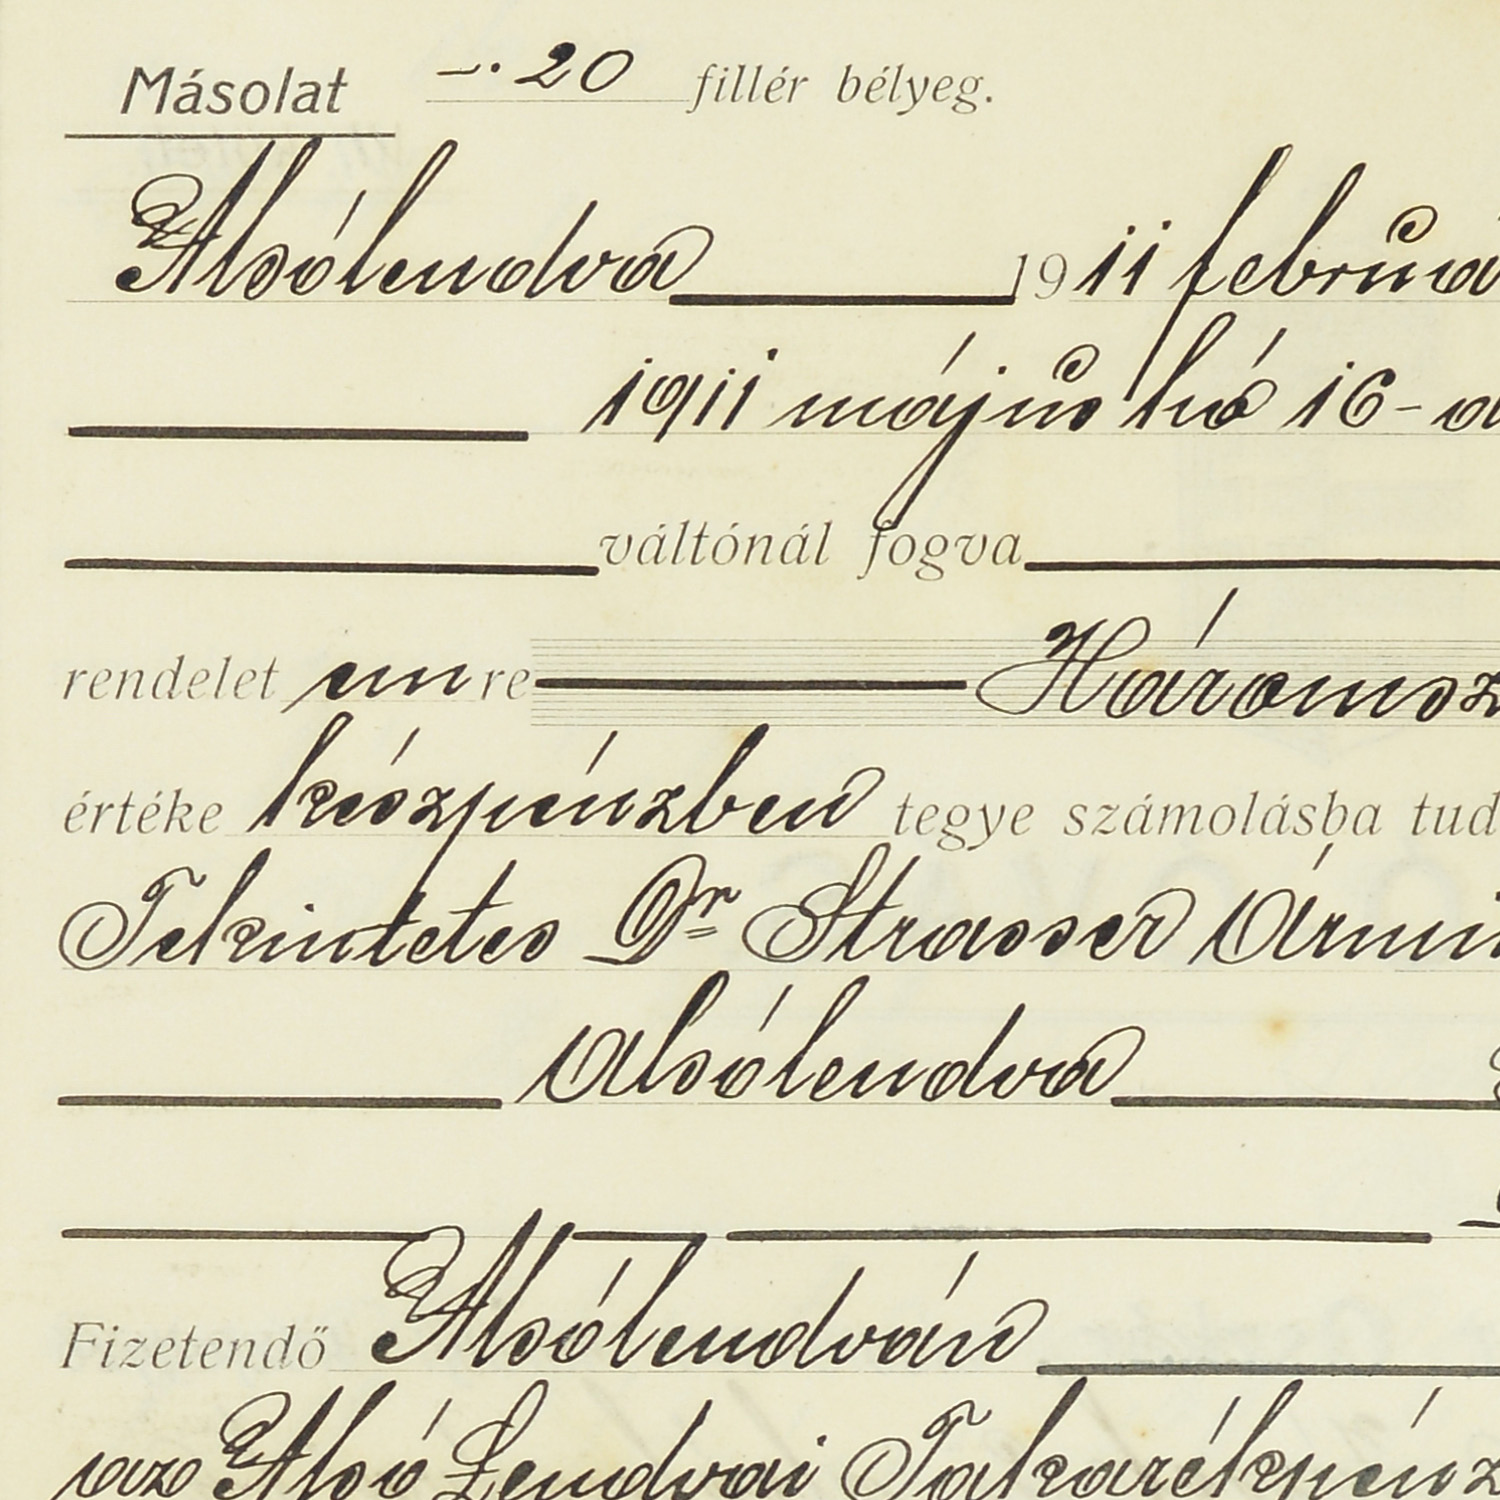 Másolat —. 20 fillér bélyeg.
Alsólendva 1911 februá
1911 május hó 16-a
váltónál fogva
rendelet em re Háromsz
értéke készpénzben tegye számolásba tud
Tekintetes Dr Strasser Ármin
Alsólendva
Fizetendő Alsólendván
az Alsó Lendvai Takarékpénz